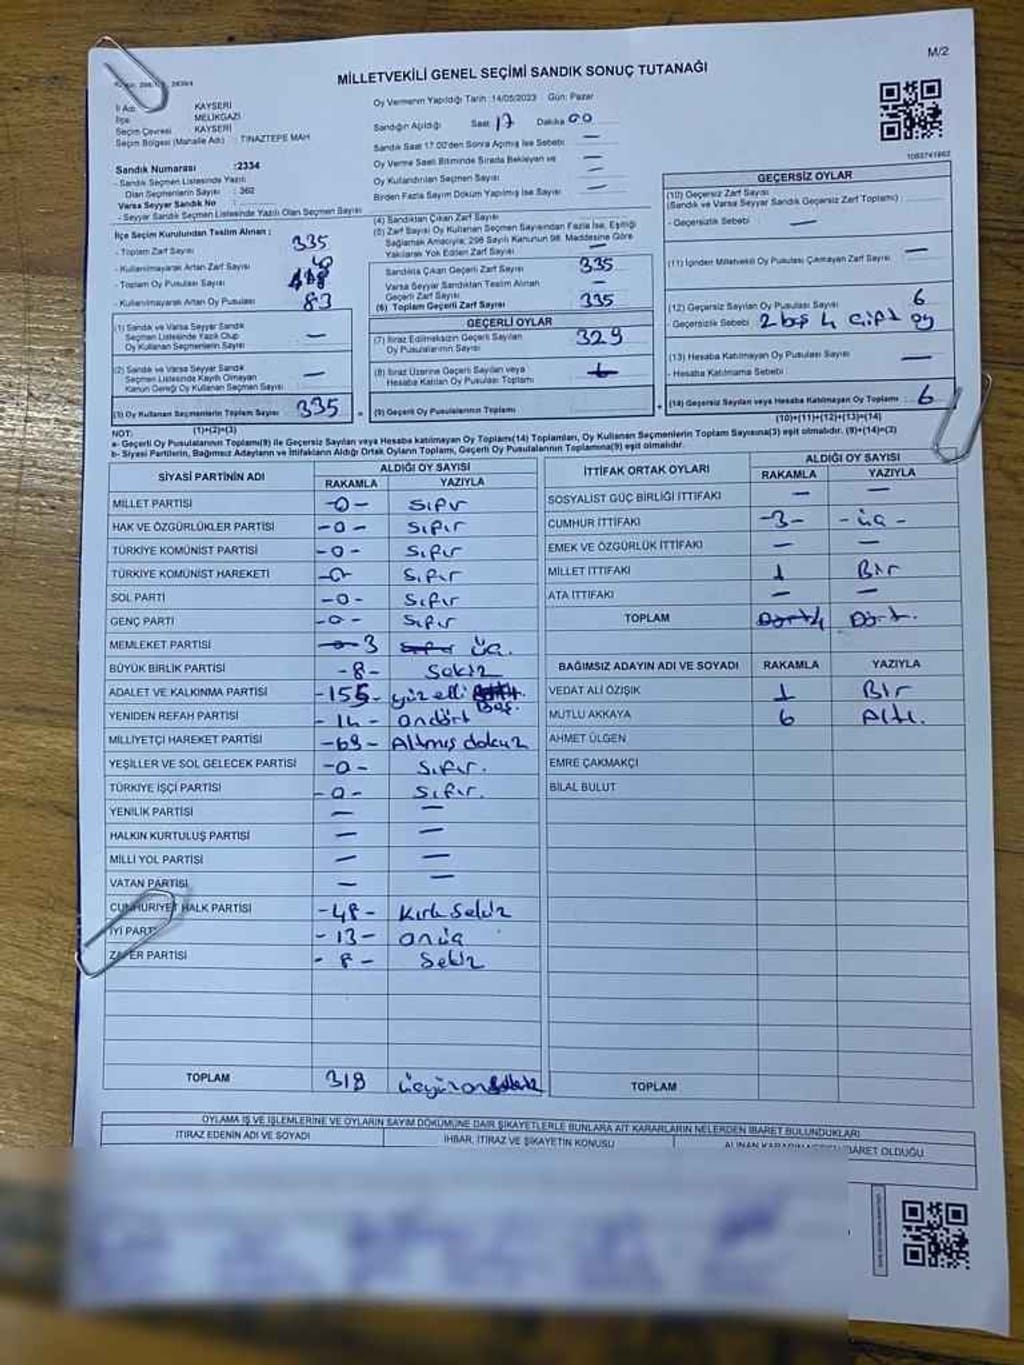 M/2
MİLLETVEKİLİ GENEL SEÇİMİ SANDIK SONUÇ TUTANAĞI
İl Adı KAYSERİ
İlçe MELİKGAZİ
Seçim Çevresi KAYSERİ
Seçim Bölgesi (Mahalle Adı) : TINAZTEPE MAH
Sandık Numarası :2334
- Sandık Seçmen Listesinde Yazılı
Olan Seçmenlerin Sayısı : 362
Varsa Seyyar Sandık No :
- Seyyar Sandık Seçmen Listesinde Yazılı Olan Seçmen Sayısı
İlçe Seçim Kurulundan Teslim Alınan :
- Toplam Zarf Sayısı 335
- Kullanılmayarak Artan Zarf Sayısı
- Toplam Oy Pusulası Sayısı
- Kullanılmayarak Artan Oy Pusulası 83
(1) Sandık ve Varsa Seyyar Sandık
Seçmen Listesinde Yazılı Olup
Oy Kullanan Seçmenlerin Sayısı —
(2) Sandık ve Varsa Seyyar Sandık
Seçmen Listesinde Kayıtlı Olmayan
Kanun Gereği Oy Kullanan Seçmen Sayısı —
(3) Oy Kullanan Seçmenlerin Toplam Sayısı 335
(1)+(2)=(3)
Oy Vermenin Yapıldığı Tarih :14/05/2023 Gün: Pazar
Sandığın Açıldığı Saat 17 Dakika 00
Sandık Saat 17.00'den Sonra Açılmış İse Sebebi —
Oy Verme Saati Bitiminde Sırada Bekleyen ve —
Oy Kullandırılan Seçmen Sayısı —
Birden Fazla Sayım Döküm Yapılmış İse Sayısı —
(4) Sandıktan Çıkan Zarf Sayısı
(5) Zarf Sayısı Oy Kullanan Seçmen Sayısından Fazla İse, Eşitliği
Sağlamak Amacıyla; 298 Sayılı Kanunun 98. Maddesine Göre
Yakılarak Yok Edilen Zarf Sayısı
Sandıkta Çıkan Geçerli Zarf Sayısı 335
Varsa Seyyar Sandıktan Teslim Alınan
Geçerli Zarf Sayısı —
(6) Toplam Geçerli Zarf Sayısı 335
GEÇERLİ OYLAR
(7) İtiraz Edilmeksizin Geçerli Sayılan
Oy Pusulalarının Sayısı 329
(8) İtiraz Üzerine Geçerli Sayılan veya
Hesaba Katılan Oy Pusulası Toplamı
(9) Geçerli Oy Pusulalarının Toplamı
1083741862
GEÇERSİZ OYLAR
(10) Geçersiz Zarf Sayısı
(Sandık ve Varsa Seyyar Sandık Geçersiz Zarf Toplamı) :
- Geçersizlik Sebebi : —
(11) İçinden Milletvekili Oy Pusulası Çıkmayan Zarf Sayısı —
(12) Geçersiz Sayılan Oy Pusulası Sayısı 6
- Geçersizlik Sebebi : 2 boş 4 çift oy
(13) Hesaba Katılmayan Oy Pusulası Sayısı —
- Hesaba Katılmama Sebebi
(14) Geçersiz Sayılan veya Hesaba Katılmayan Oy Toplamı : 6
(10)+(11)+(12)+(13)=(14)
NOT:
a- Geçerli Oy Pusulalarının Toplamı(9) ile Geçersiz Sayılan veya Hesaba katılmayan Oy Toplamı(14) Toplamları, Oy Kullanan Seçmenlerin Toplam Sayısına(3) eşit olmalıdır. (9)+(14)=(3)
b- Siyasi Partilerin, Bağımsız Adayların ve İttifakların Aldığı Ortak Oyların Toplamı, Geçerli Oy Pusulalarının Toplamına(9) eşit olmalıdır.
SİYASİ PARTİNİN ADI ALDIĞI OY SAYISI
RAKAMLA YAZIYLA
MİLLET PARTİSİ -0- Sıfır
HAK VE ÖZGÜRLÜKLER PARTİSİ -0- Sıfır
TÜRKİYE KOMÜNİST PARTİSİ -0- Sıfır
TÜRKİYE KOMÜNİST HAREKETİ -0- Sıfır
SOL PARTİ -0- Sıfır
GENÇ PARTİ -0- Sıfır
MEMLEKET PARTİSİ -0- 3 Sıfır üç.
BÜYÜK BİRLİK PARTİSİ -8- Sekiz
ADALET VE KALKINMA PARTİSİ -155- yüz elli Beş.
YENİDEN REFAH PARTİSİ -14- ondört
MİLLİYETÇİ HAREKET PARTİSİ -69- Altmış dokuz
YEŞİLLER VE SOL GELECEK PARTİSİ -0- Sıfır.
TÜRKİYE İŞÇİ PARTİSİ -0- Sıfır.
YENİLİK PARTİSİ — —
HALKIN KURTULUŞ PARTİSİ — —
MİLLİ YOL PARTİSİ — —
VATAN PARTİSİ — —
CUMHURİYET HALK PARTİSİ -48- Kırk Sekiz
İYİ PARTİ -13- onüç
ZAFER PARTİSİ -8- Sekiz
TOPLAM 318
İTTİFAK ORTAK OYLARI ALDIĞI OY SAYISI
RAKAMLA YAZIYLA
SOSYALİST GÜÇ BİRLİĞİ İTTİFAKI — —
CUMHUR İTTİFAKI -3- -üç-
EMEK VE ÖZGÜRLÜK İTTİFAKI — —
MİLLET İTTİFAKI 1 Bir
ATA İTTİFAKI — —
TOPLAM Dört 4 Dört.
BAĞIMSIZ ADAYIN ADI VE SOYADI RAKAMLA YAZIYLA
VEDAT ALİ ÖZIŞIK 1 Bir
MUTLU AKKAYA 6 Altı.
AHMET ÜLGEN
EMRE ÇAKMAKÇI
BİLAL BULUT
TOPLAM
OYLAMA İŞ VE İŞLEMLERİNE VE OYLARIN SAYIM DÖKÜMÜNE DAİR ŞİKAYETLERLE BUNLARA AİT KARARLARIN NELERDEN İBARET BULUNDUKLARI
İTİRAZ EDENİN ADI VE SOYADI İHBAR, İTİRAZ VE ŞİKAYETİN KONUSU İBARET OLDUĞU